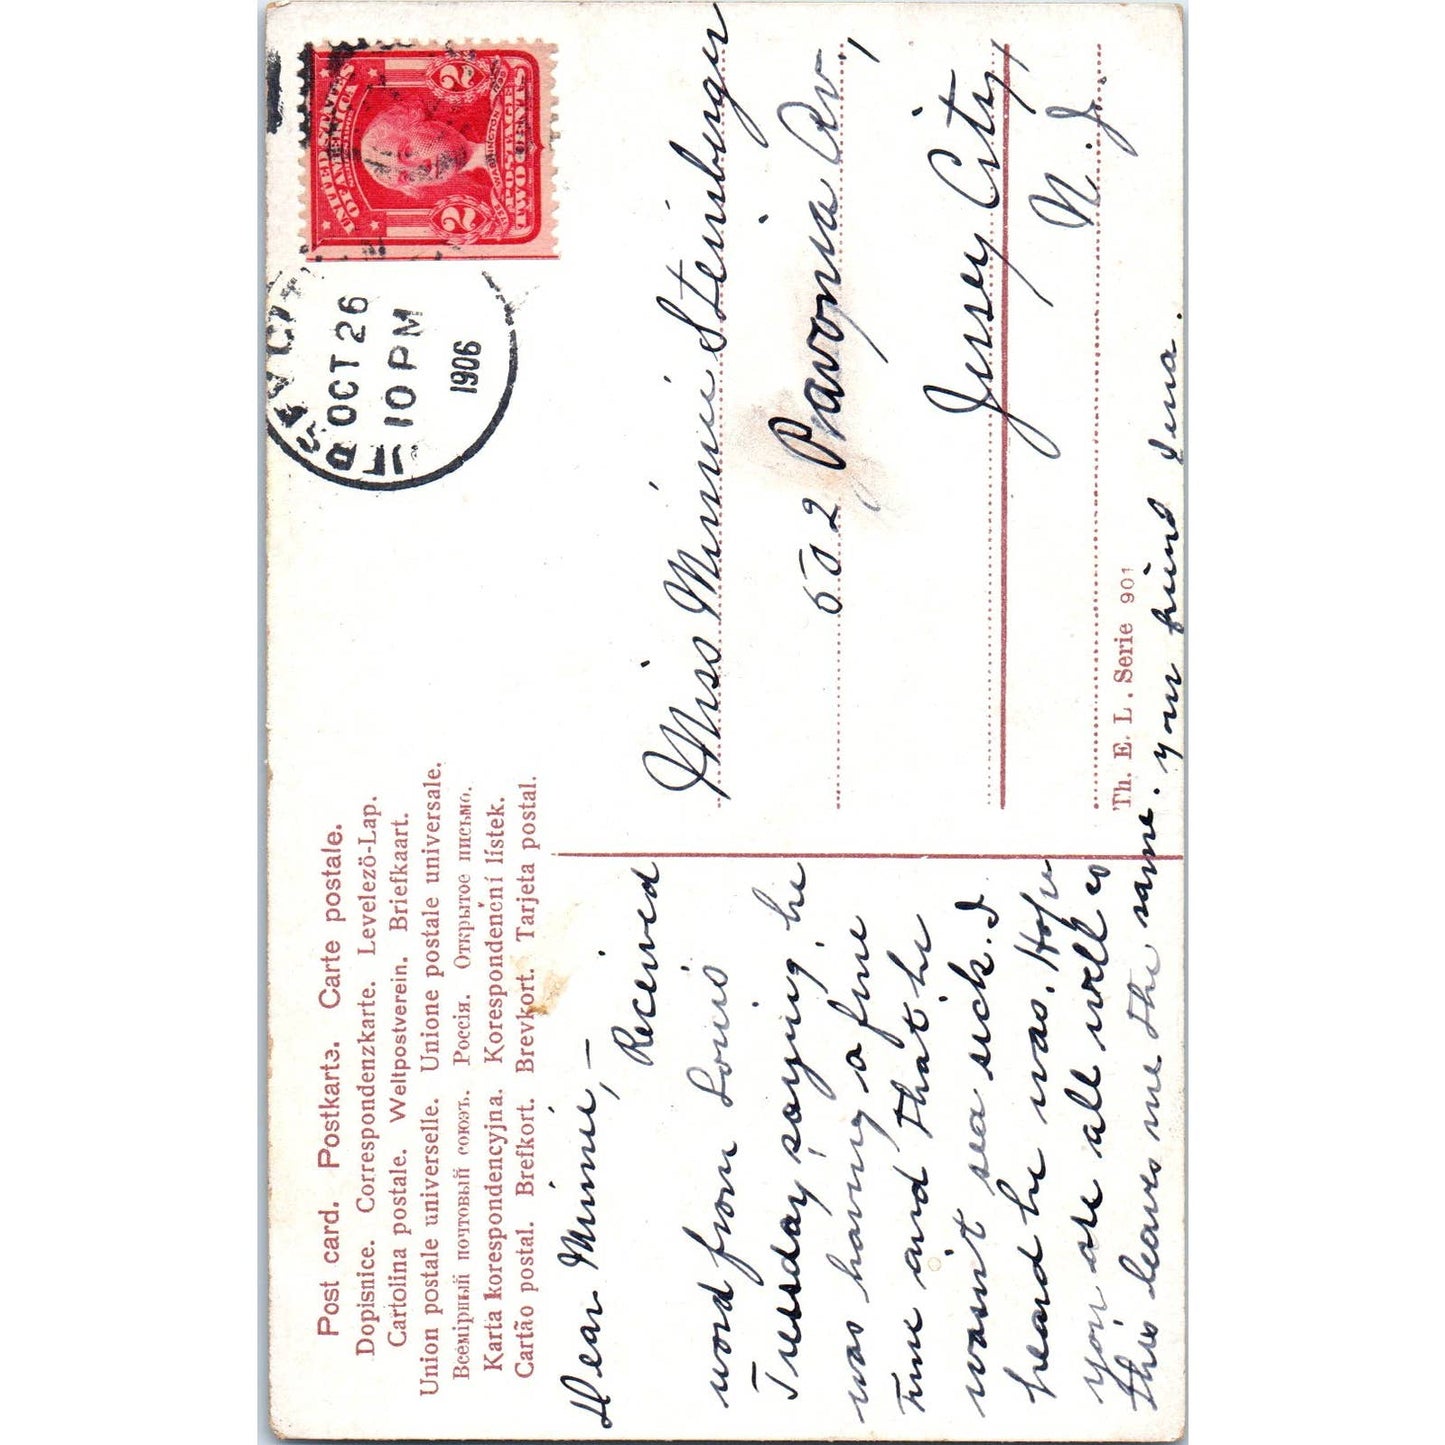 Post card. Postkarte. Carte postale.
Dopisnice. Correspondenzkarte. Levelező-Lap.
Cartolina postale. Weltpostverein. Briefkaart.
Union postale universelle. Unione postale universale.
Всемірный почтовый союзъ. Россія. Открытое письмо.
Karta korespondencyjna. Korespondenční lístek.
Cartão postal. Brefkort. Brevkort. Tarjeta postal.
JERSEY CITY
OCT 26
10 PM
1906
UNITED STATES
OF AMERICA
1732 WASHINGTON 1799
2 2
POSTAGE
TWO CENTS
Dear Minnie,—
Received
word from Louis
Tuesday, saying, he
was having a fine
time and that he
wasn't sea sick. I
heard he was. Hope
you are all well as
this leaves me the same. your friend
Miss Minnie Steinberger
602 Pavonia Av.,
Jersey City,
N. J.
Th. E. L. Serie 901